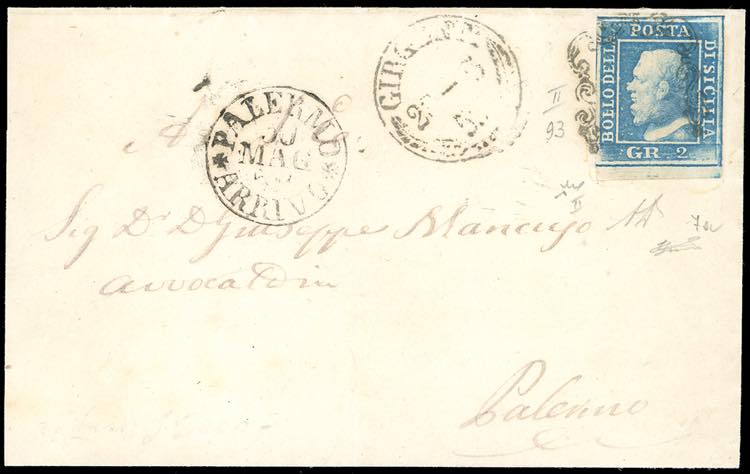 BOLLO DELLA POSTA DI SICILIA
GR. 2
GIRGENTI
II
93
PALERMO
MAG
ARRIVO
II
Sig Dr D Giuseppe Mancuso
Palermo